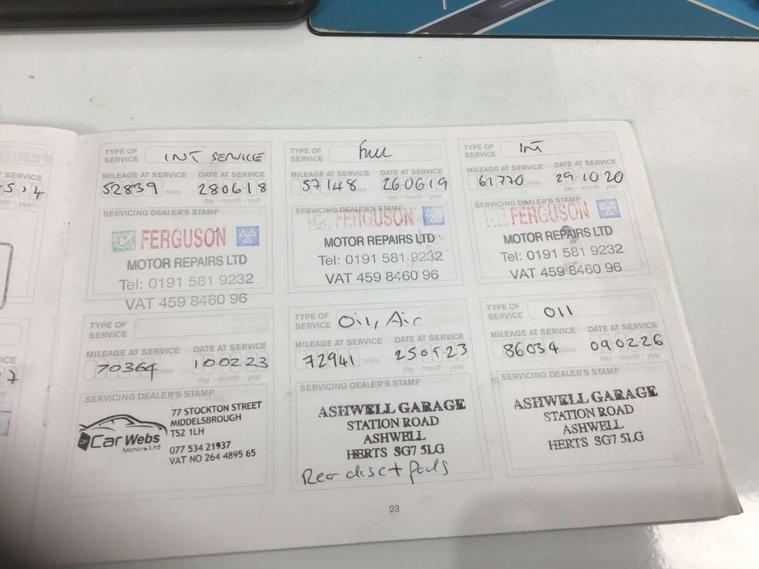 TYPE OF SERVICE INT SERVICE
MILEAGE AT SERVICE DATE AT SERVICE
52839 miles 280618
day - month - year
SERVICING DEALER'S STAMP
FERGUSON
MOTOR REPAIRS LTD
Tel: 0191 581 9232
VAT 459 8460 96
TYPE OF SERVICE Full
MILEAGE AT SERVICE DATE AT SERVICE
57148 miles 260619
day - month - year
SERVICING DEALER'S STAMP
FERGUSON
MOTOR REPAIRS LTD
Tel: 0191 581 9232
VAT 459 8460 96
TYPE OF SERVICE Int
MILEAGE AT SERVICE DATE AT SERVICE
61770 miles 29-10-20
day - month - year
SERVICING DEALER'S STAMP
FERGUSON
MOTOR REPAIRS LTD
Tel: 0191 581 9232
VAT 459 8460 96
TYPE OF SERVICE
MILEAGE AT SERVICE DATE AT SERVICE
70364 miles 100223
day - month - year
SERVICING DEALER'S STAMP
Car Webs
Motors Ltd
77 STOCKTON STREET
MIDDELSBROUGH
TS2 1LH
077 534 21937
VAT NO 264 4895 65
TYPE OF SERVICE Oil, Air
MILEAGE AT SERVICE DATE AT SERVICE
72941 miles
day - month - year
SERVICING DEALER'S STAMP
ASHWELL GARAGE
STATION ROAD
ASHWELL
HERTS SG7 5LG
Rear disc + pads
TYPE OF SERVICE Oil
MILEAGE AT SERVICE DATE AT SERVICE
86034 miles 090226
day - month - year
SERVICING DEALER'S STAMP
ASHWELL GARAGE
STATION ROAD
ASHWELL
HERTS SG7 5LG
23